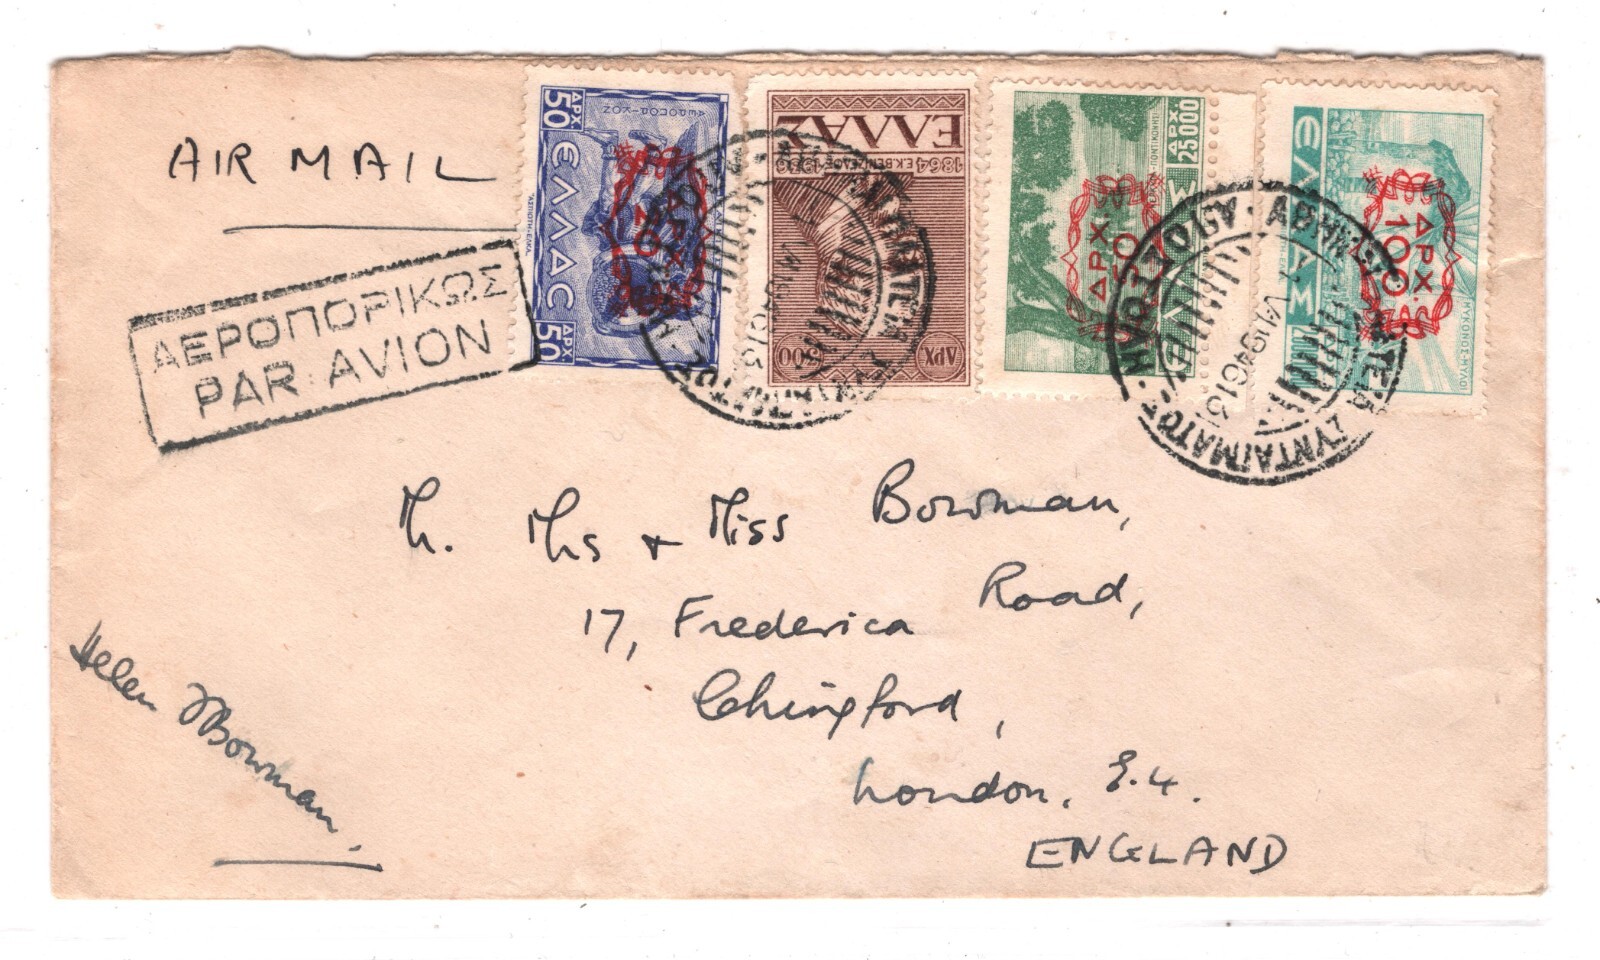 AIR MAIL
ΑΕΡΟΠΟΡΙΚΩΣ
PAR AVION
50 ΔΡΧ.
ΕΛΛΑΣ
ΔΡΧ. 50
ΕΛΛΑΣ
1864 ΕΛ. ΒΕΝΙΖΕΛΟΣ 1936
ΔΡΧ. 300
ΔΡΧ. 25.000
ΔΡΧ.
250
ΕΛΛΑΣ
ΔΡΧ.
100
ΜΥΚΟΝΟΣ-ΜΥΛΟΙ
ΣΥΝΤΑΓΜΑΤΟΣ
Mr. Mrs & Miss Bowman,
17, Frederica Road,
Chingford,
London, E.4.
ENGLAND
Helen Bowman.